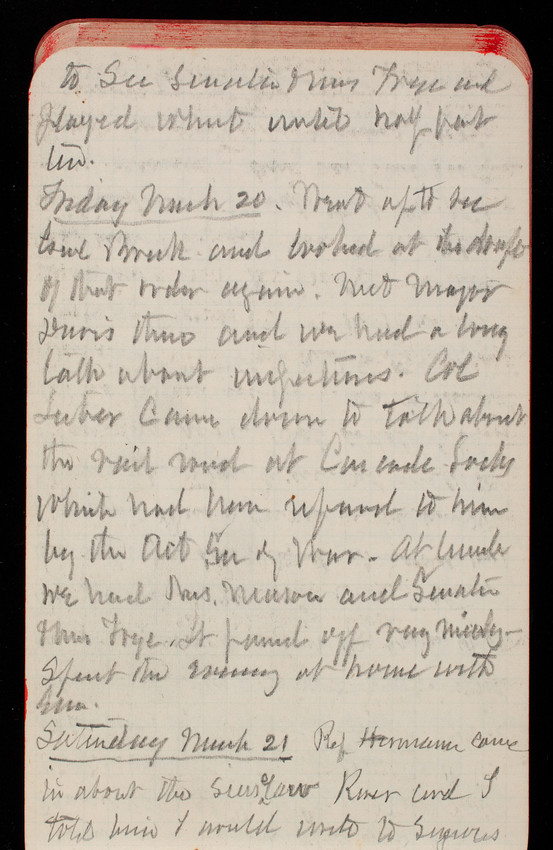 to See Senator & Mrs Frye and
played whist until half past
ten.
Friday March 20. Went up to see
and looked at the draft
of that order again. Met Major
Davis there and we had a long
talk about inspections. Col
Lieber came down to talk about
the rail road at Cascade Locks
which had been referred to him
by the Act Sec of War. At lunch
we had Mrs. Mason and Senator
& Mrs Frye. It passed off very nicely-
Spent the evening at home with
Saturday March 21 Rep Hermann came
in about the Siuslaw River and I
told him I would write to